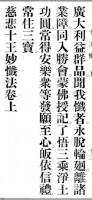 廣大利益群品聞我懺者永脫輪廻離諸
業障同入勝會蒙佛授記了悟三乘淨土
功圓常得安樂衆等發願至心皈依信禮
常住三寶
慈悲十王妙懺法卷上